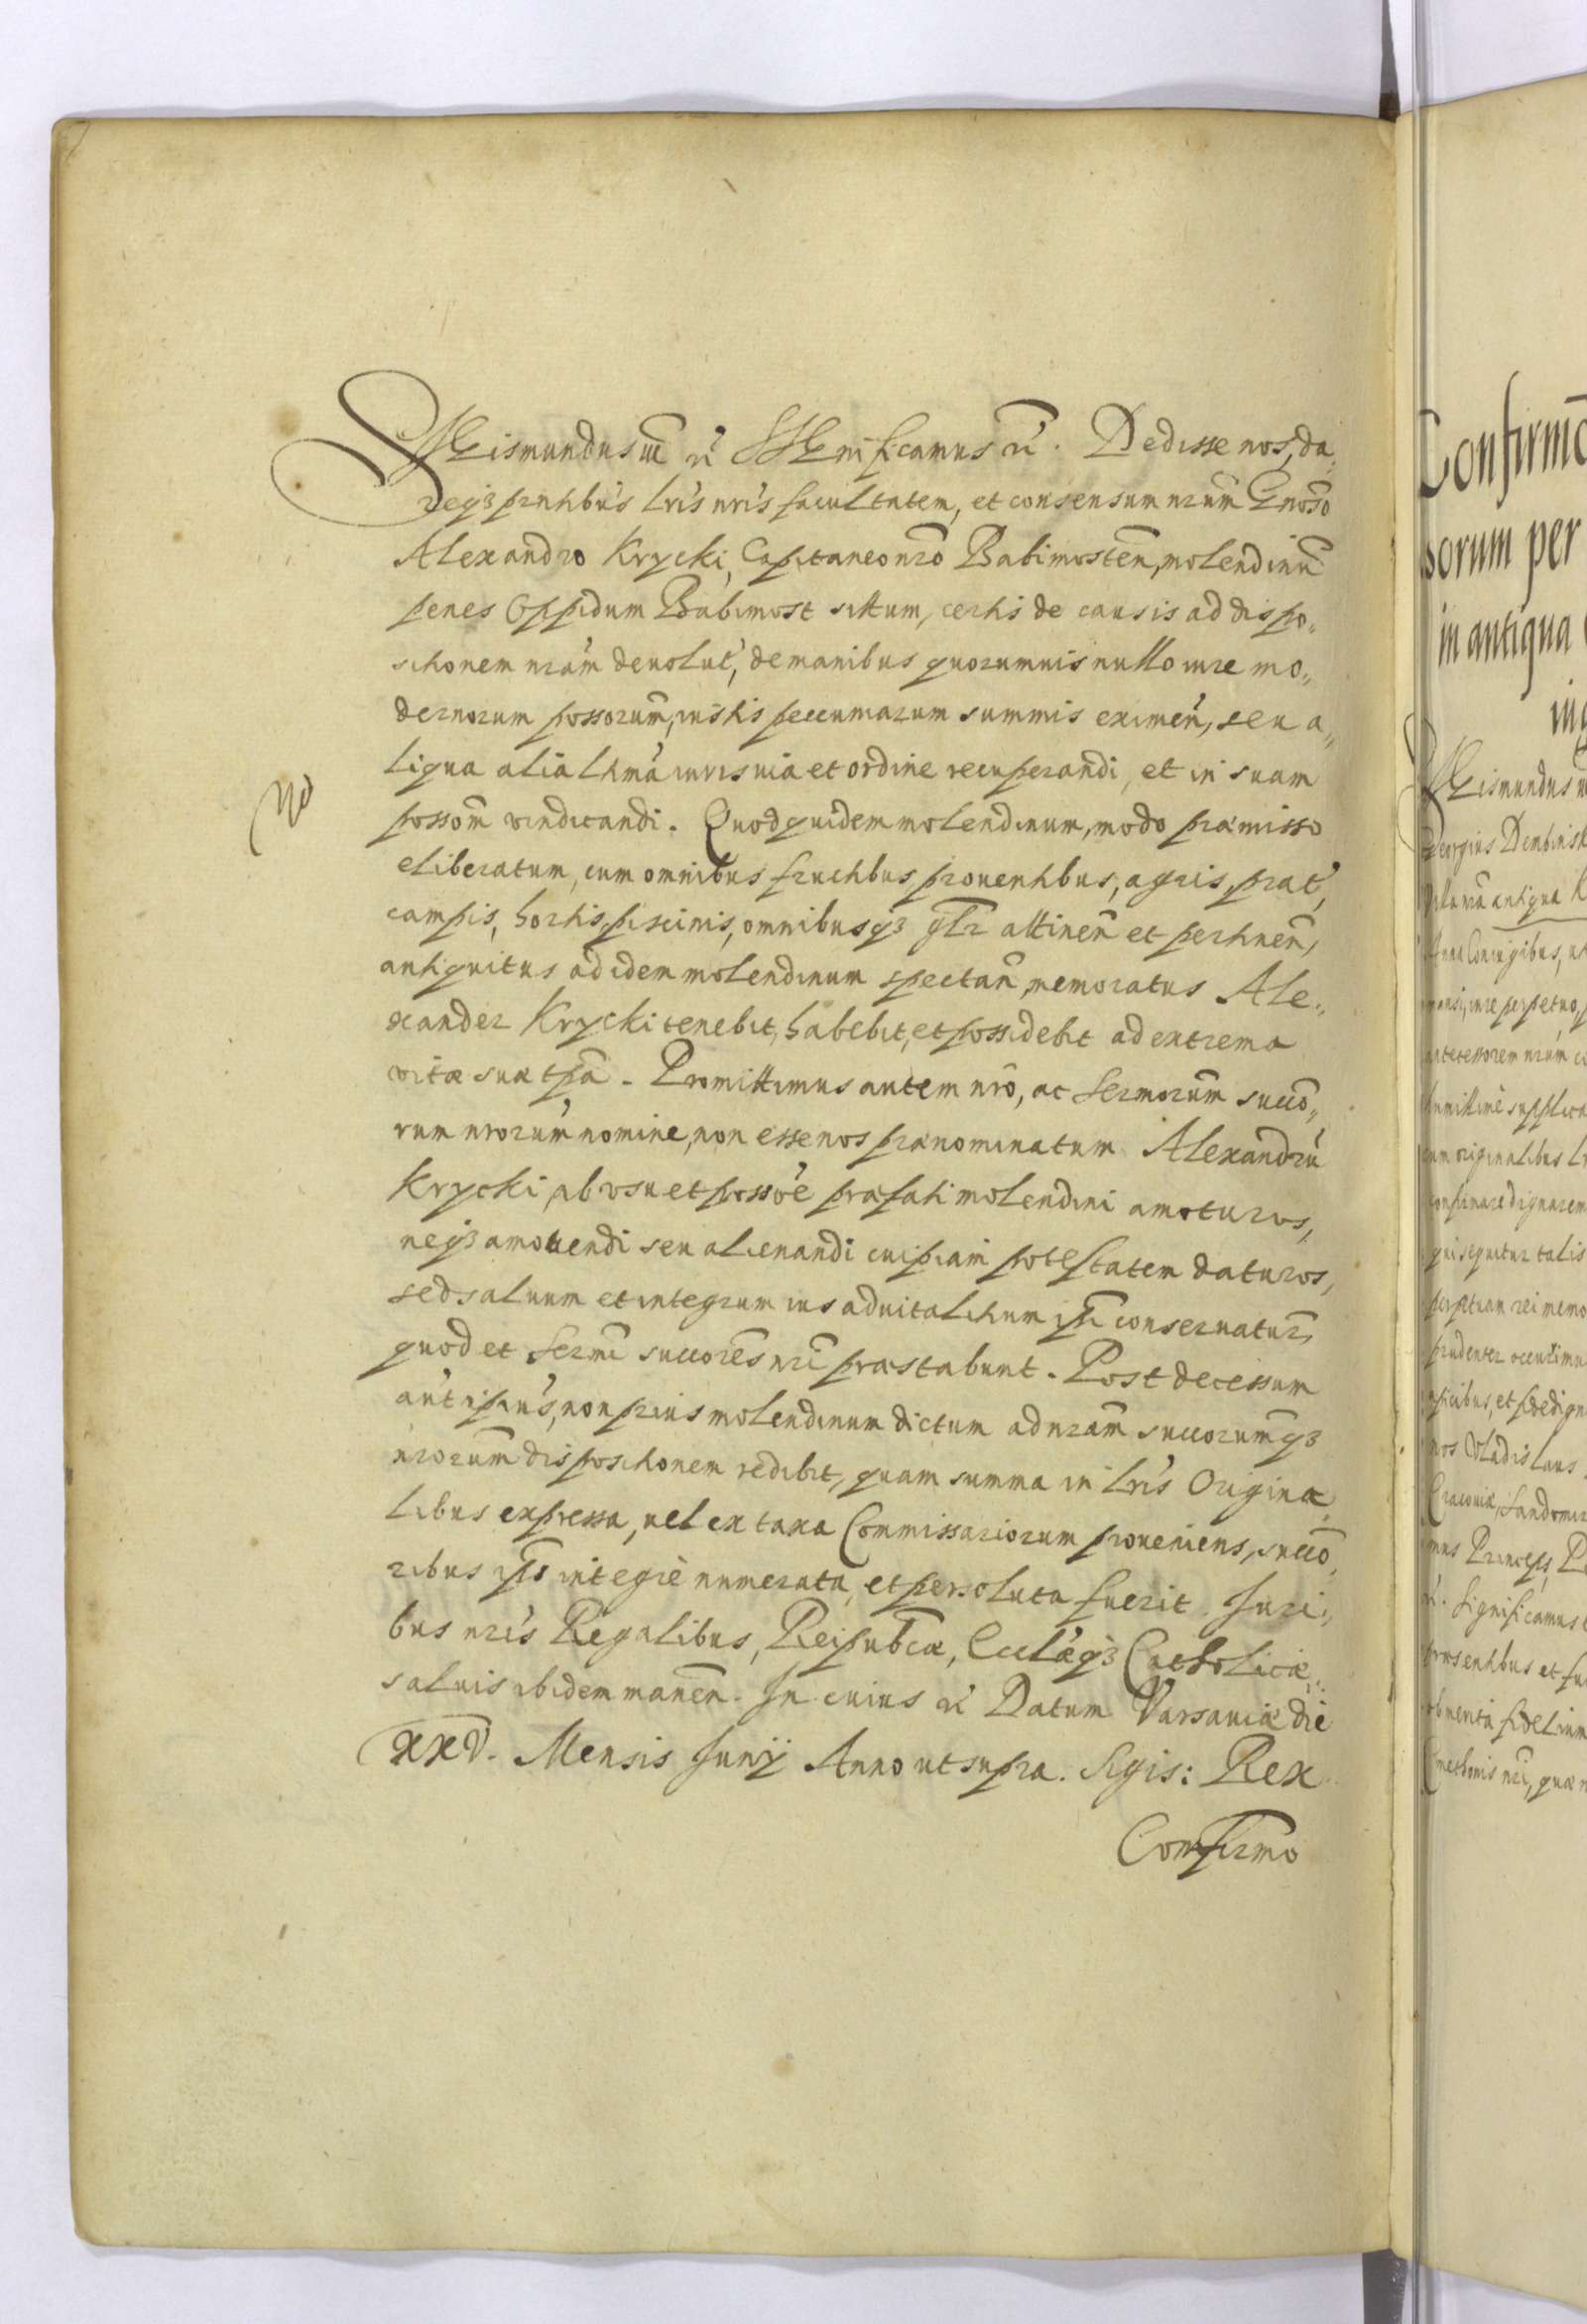 Sigismundus III etc. Significamus etc. Dedisse nos, da„
reqꝫ pñtibus lris nris facultatem, et consensum nrum Gnoso
Alexandro Krycki, Capitaneo nro Babimosten, molendinũ
penes Oppidum Babimost situm, certis de causis ad dispo„
sitionem nram deuolut, de manibus quorumuis nullo iure mo„
dernorum possorum, iustis pecuniarum summis eximen, seu a„
liqua alia ltima iuris uia et ordine recuperandi, et in suam
possom vindicandi. Quod quidem molendinum, modo præmisso
eliberatum, cum omnibus fructibus, prouentibus, agris, prat,
campis, hortis, piscinis, omnibusqꝫ gñlr attinen et pertinen,
antiquitus ad idem molendinum spectan, memoratus Ale„
xander Krycki tenebit, habebit, et possidebit ad extrema
vitæ suæ tpa. Promittimus autem nro, ac Sermorum succo„
rum nrorum nomine, non esse nos prænominatum Alexandrũ
Krycki, ab vsu et possõe præfati molendini amoturos,
neqꝫ amouendi seu alienandi cuipiam potestatem daturos,
sed saluum et integrum ius aduitalitium ipsi conseruatur,
quod et Sermi succores nri præstabunt. Post decessum
aut ipsius, non prius molendinum dictum ad nram succorumqꝫ
nrorum dispositionem redibit, quam summa in lris Origina„
libus expressa, uel ex taxa Commissariorum proueniens, succo„
ribus ipsi integrè numerata, et persoluta fuerit. Juri„
bus nris Regalibus, Reipubcæ, Ecclæqꝫ Catholicæ„
saluis ibidem manen. In cuius etc. Datum Varsauiæ die
XXV. Mensis Junij Anno ut supra. Sigis: Rex
Confirmo
No
Confirmo
sorum per
in antiqua
Sigismundus
Georgius Dembinsk
antiqua
Coniugibus,
iure perpetuo,
antecessorem nrum
humillimè supplica
originalibus
confirmare dignarem
qui sequitur talis
perpetuam rei memo
prudenter occurrimu
nos Vladislaus
Cracouiæ, Sandomir
Princeps, P
Significamus
præsentibus et fu
merita fidelium
nri, quæ